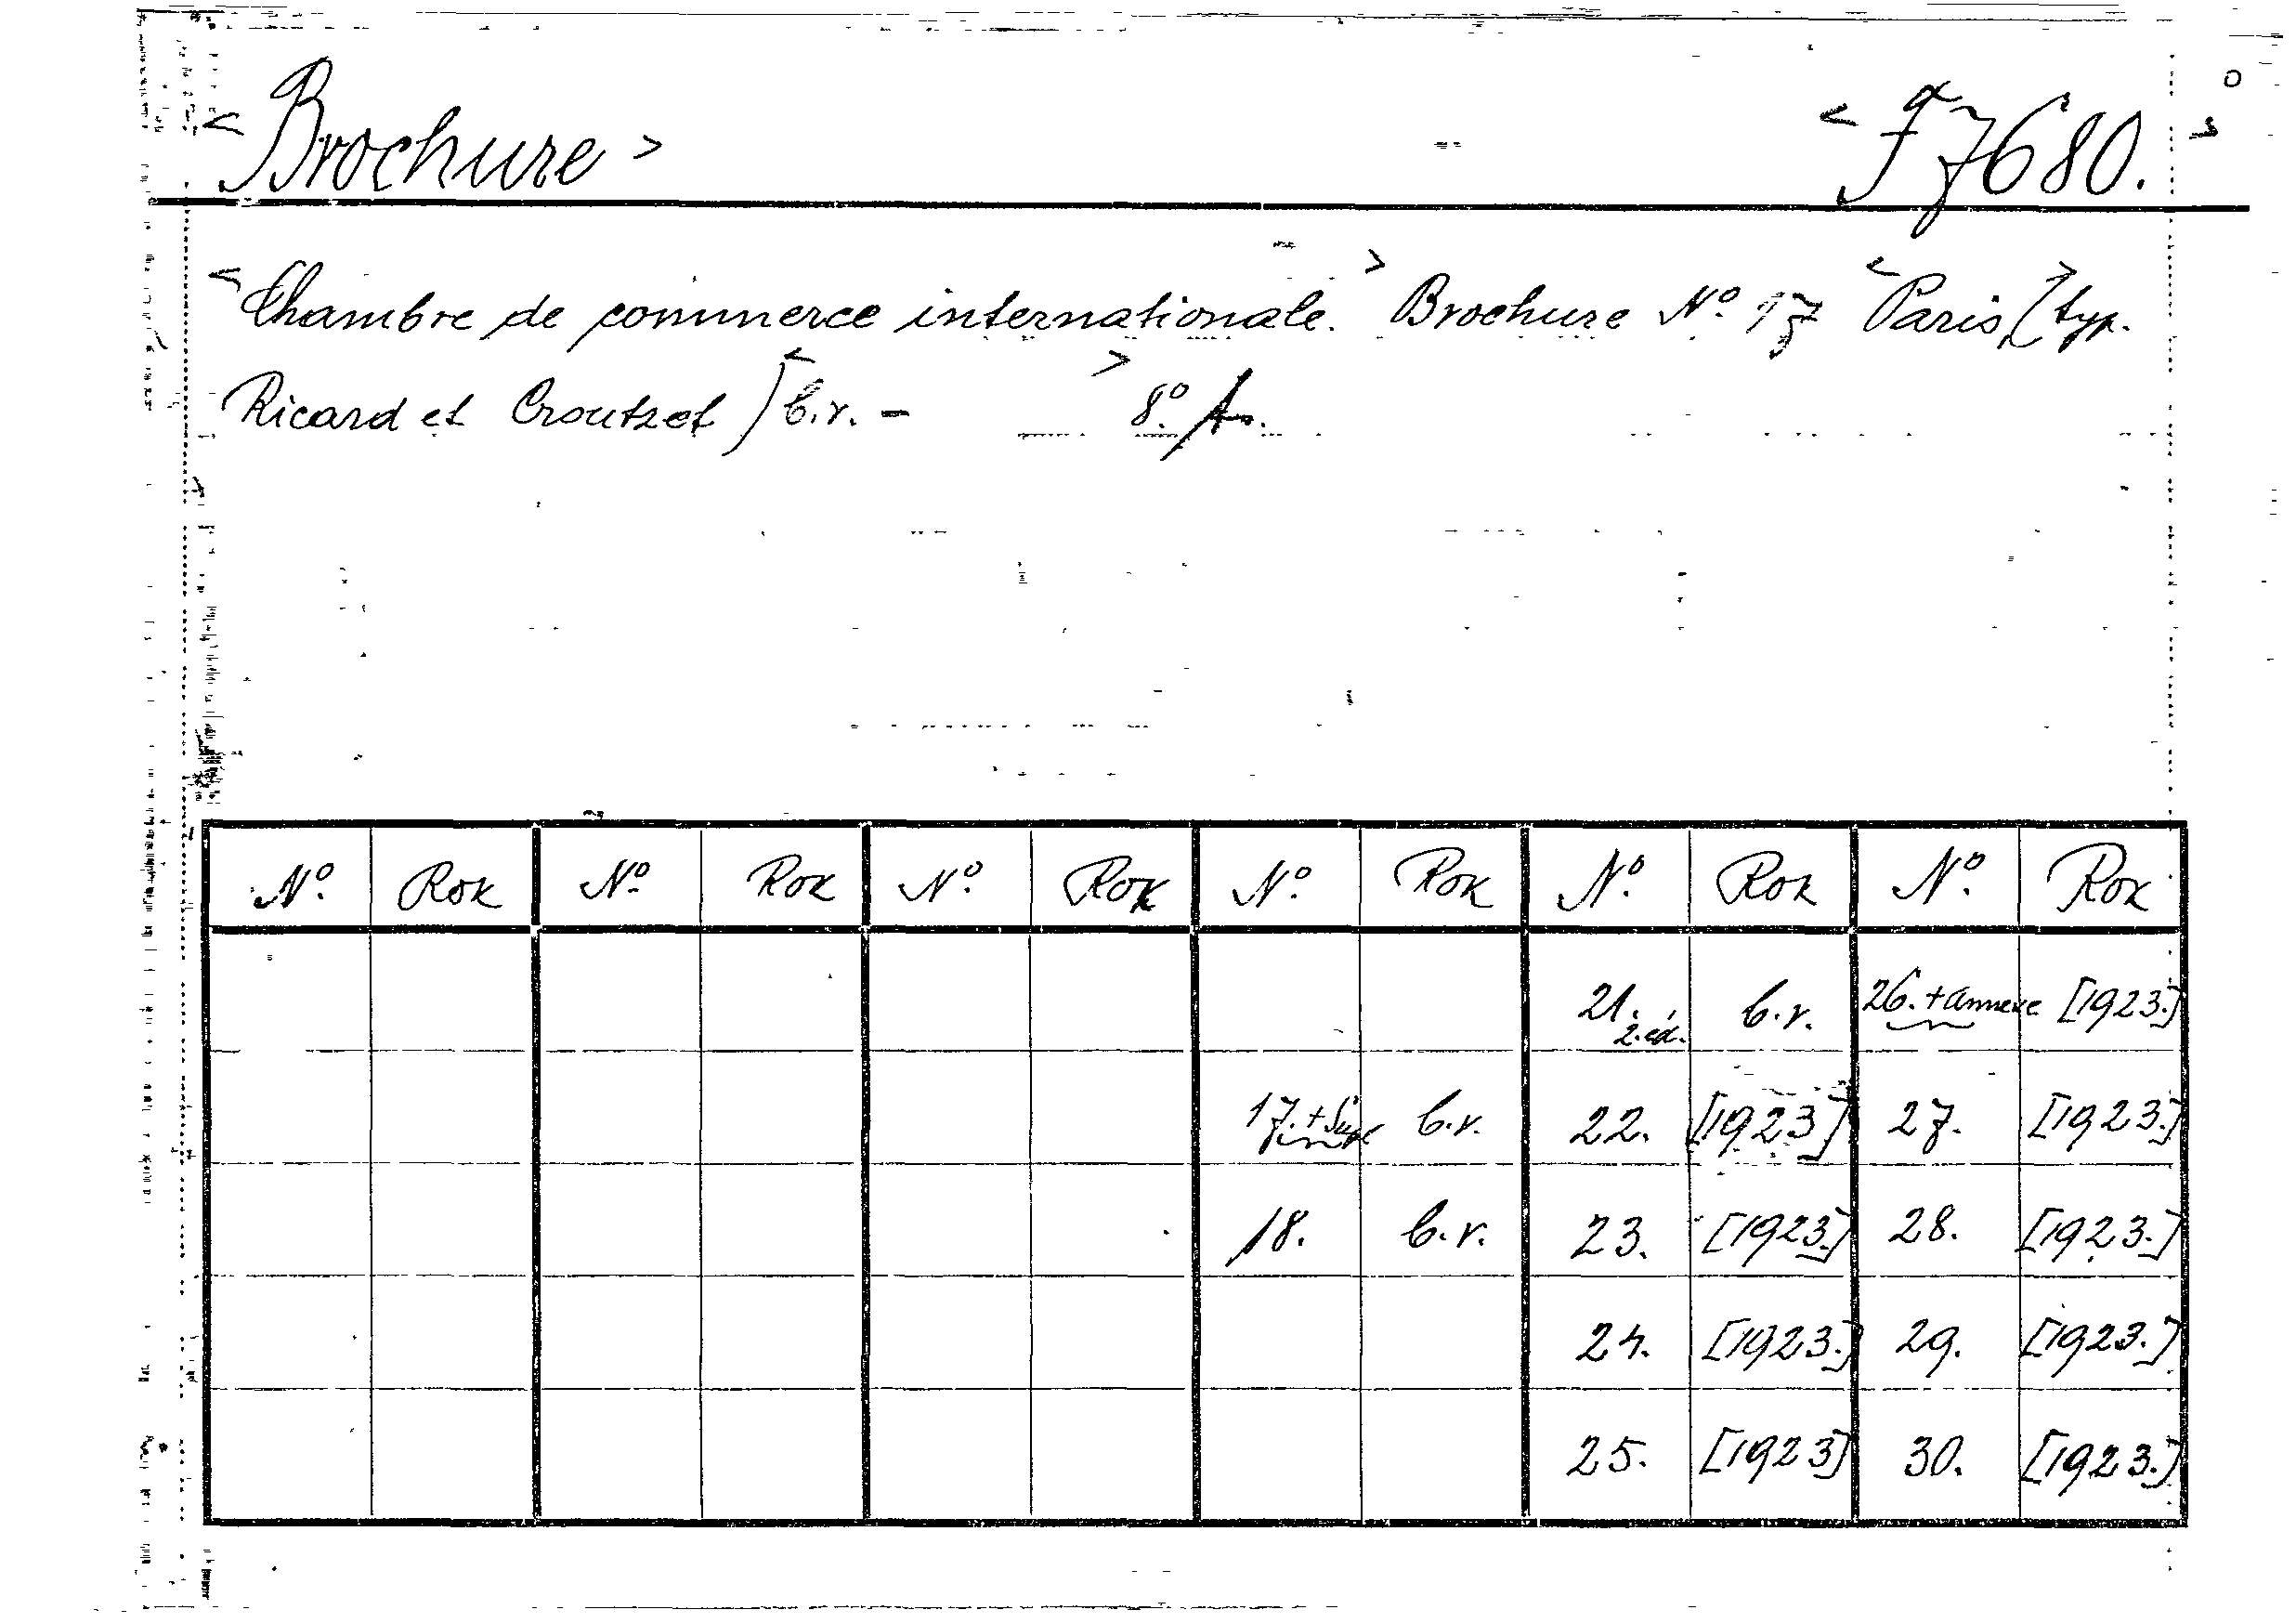 < Brochure > < F 7680. >
< Chambre de commerce internationale. > Brochure Nº 17 < Paris > (typ.
Ricard et Croutzet) < b.r. - > 8º. A.
Nº. Rok Nº. Rok Nº. Rok Nº. Rok Nº. Rok Nº. Rok
21. 2.éd. b.r. 26. + annexe [1923.]
17. + Supl b.r. 22. [1923] 27. [1923.]
18. b.r. 23. [1923.] 28. [1923.]
24. [1923.] 29. [1923.]
25. [1923] 30. [1923.]